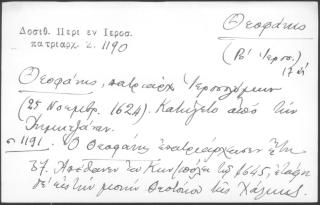 Θεοφάνης
Δοσιθ. Περι εν Ιεροσ.
πατριαρχ. Σ. 1190
(Βʹ Ἱεροσ.)
17 αἰ
Θεοφάνης, πατριάρχ. Ἱεροσολύμων
(25 Νοεμβρ. 1624). Κατήγετο ἀπὸ τὴν
Δημητζάναν.
σ 1191. Ὁ Θεοφάνης ἐπατριάρχευσεν ἔτη
37. Ἀπέθανεν ἐν Κων/πόλει τῷ 1645, ἐτάφη
δὲ εἰς τὴν μονὴν Θεοτόκου τῆς Χάλκης.